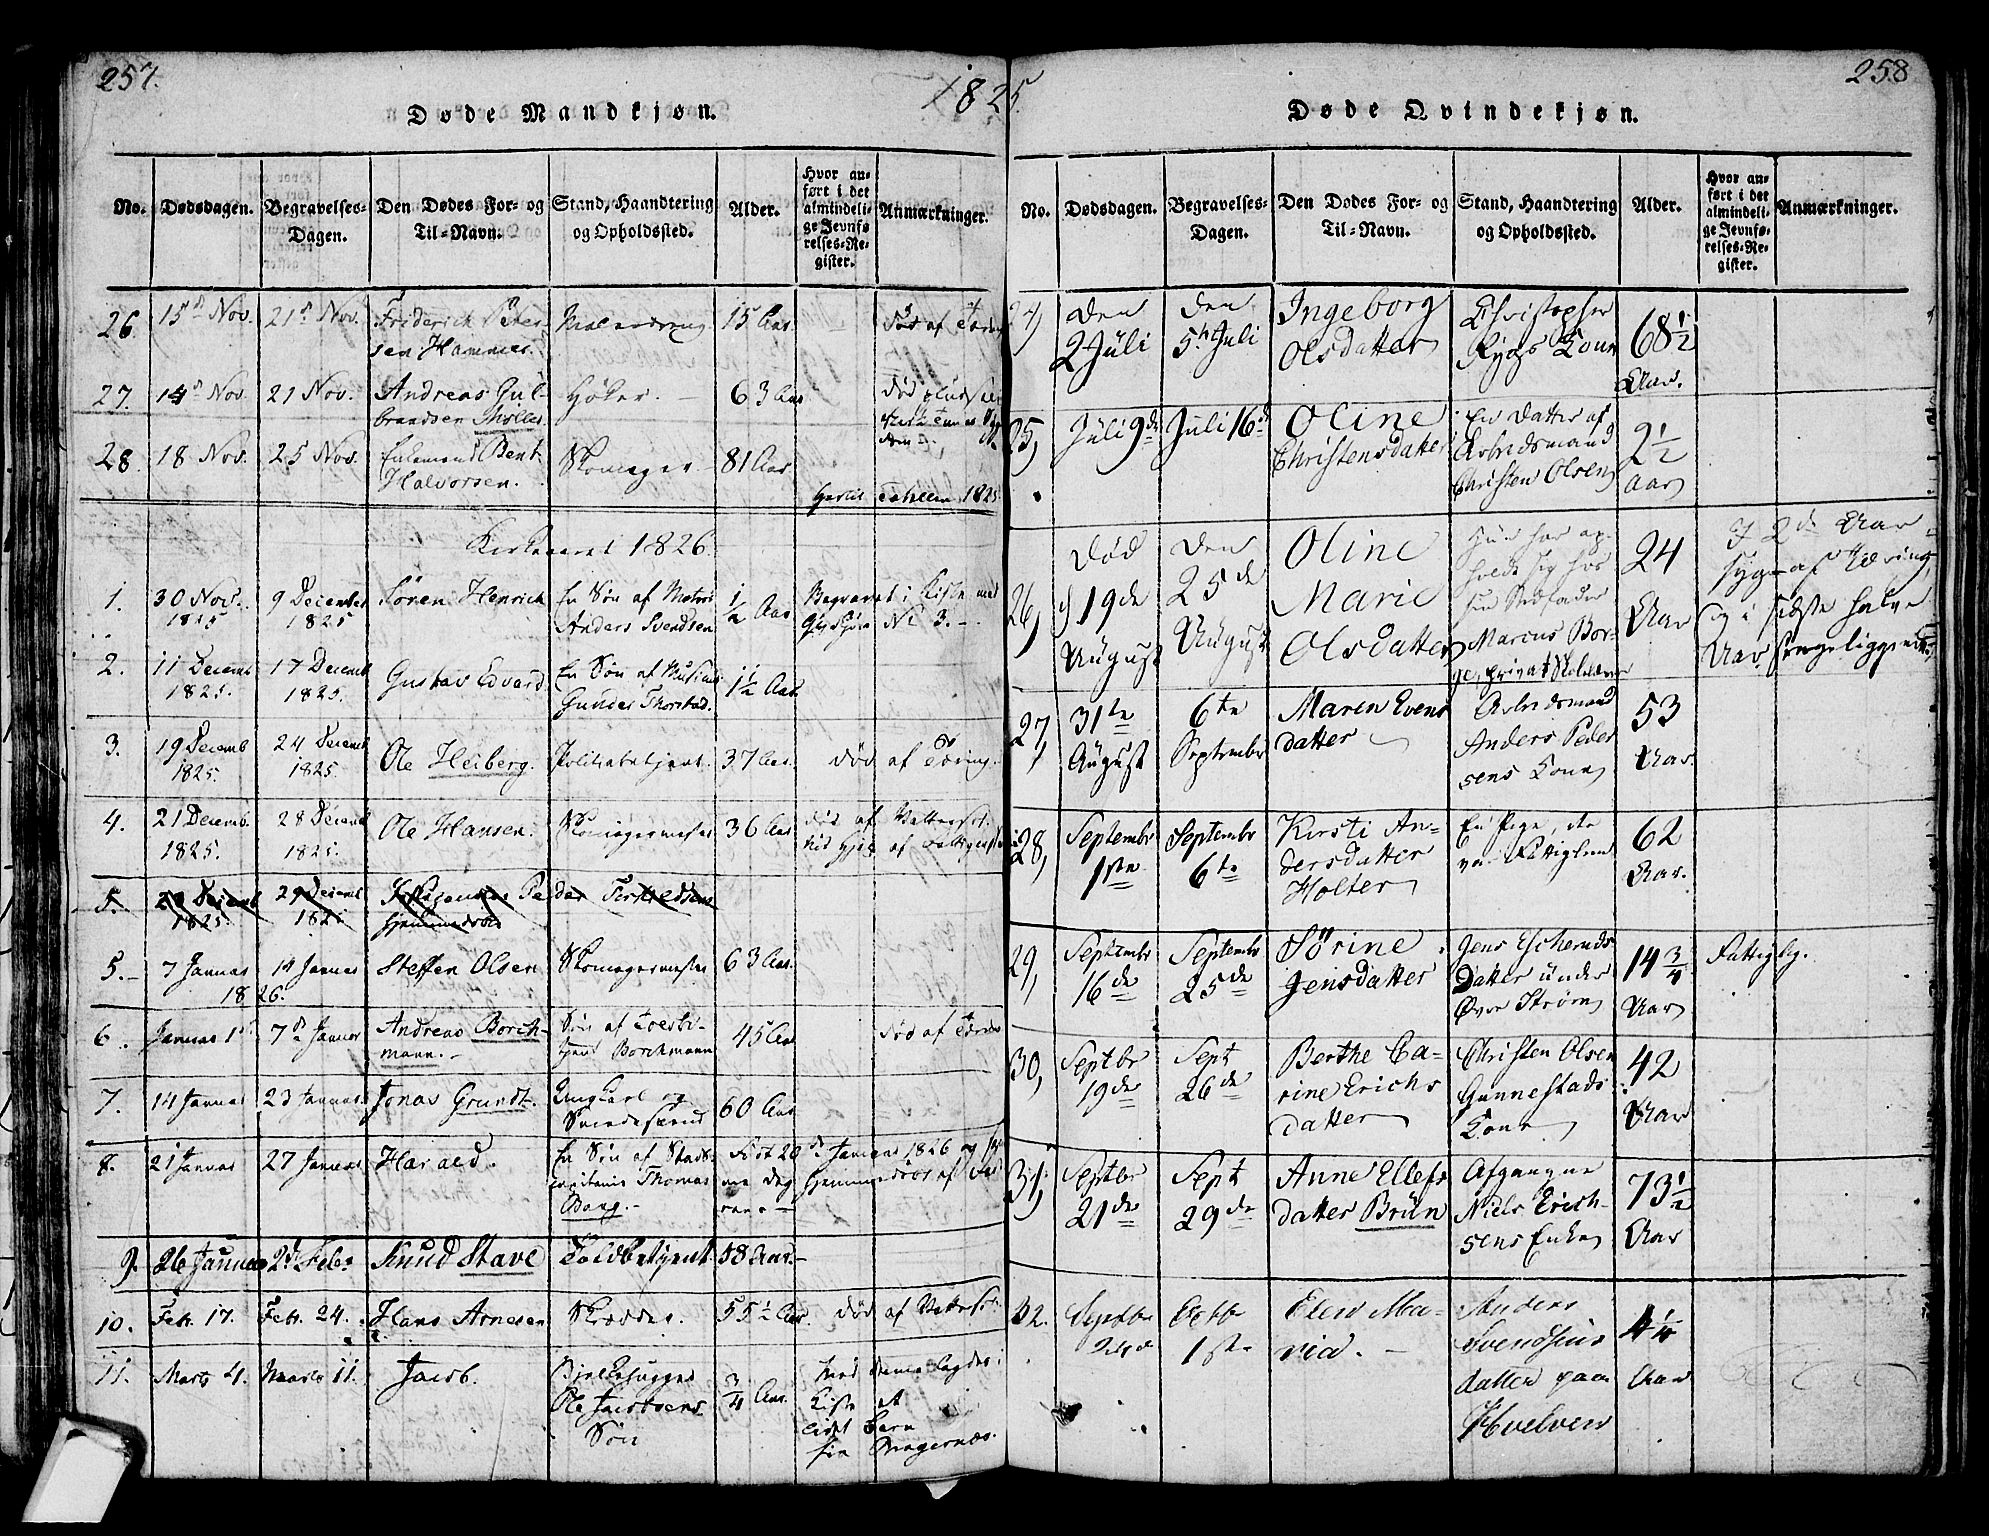 257.
1825.
Døde Mandkjøn.
No. Dødsdagen. Begravelses-Dagen. Den Dødes For- og Til-Navn. Stand, Haandtering og Opholdssted. Alder. Hvor anført i det almindelige Jevnførelses-Register. Anmærkninger.
26 15d Nov. 21d Nov. Friderich Peter-
sen Hammer. 15 Aar. Død af
27. 14d Nov 21 Nov. Andreas Gul-
brandsen Høker. 63 Aar
28. 18 Nov. 25 Nov. Enkemand Bent
Halvorsen. Skomager 81 Aar
1825
Kirkeaaret 1826.
1. 30 Nov. 1825 9 December 1825 Søren Henrich En Søn af
Anders Svendsen ½ Aar Begravet i Kiste med
No 3.
2. 11 Decemb 1825. 17 Decemb 1825. Gustav Edvard En Søn af
Gunder Thorstad. 1½ Aar
3. 19 Decemb 1825. 24 Decemb 1825. Ole Heiberg. Politiebetjent. 37 Aar. Død af Tæring.
4. 21 Decemb. 1825. 28 Decemb 1825. Ole Hansen. Skomagermester 36 Aar død af
5. 1825. 29 Decemb 1825
5. 7 Januar 14 Januar 1826. Steffen Olsen Skomagermester 63 Aar.
6. Januar 1 7d Januar Andreas Borch-
mann. Søn af
Borchmann 45 Aar Død af
7. 14 Januar 23 Januar Jonas Grundt. Ungkarl og
60 Aar
8. 21 Januar 27 Januar Harald. En Søn af Stads-
capitaine Thomas
Bang. Født 20d Januar 1826 og
9. 26 Januar 2d Febr Knud Stave Toldbetjent. 58 Aar.
10. Febr. 17. Febr. 24. Hans Arnesen Skrædder. 55½ Aar Død af Vattersot.
11. Marts 4. Marts 11. Jacob. Bjelkehugger
Ole Jacobsens
Søn ¾ Aar. Med denne lagdes i
Kiste et
lidet Barn
fra Magernæs.
258
Døde Qvindekjøn.
No. Dødsdagen. Begravelses-Dagen. Den Dødes For- og Til-Navn. Stand, Haandtering og Opholdssted. Alder. Hvor anført i det almindelige Jevnførelses-Register. Anmærkninger.
24) den
2 Juli den
5te Juli Ingeborg
Olsdatter Christopher
Rygs Kone 68½
Aar.
25) Juli 9de Juli 16de Oline
Christensdatter En Datter af
Arbeidsmand
Christen Olsen 2½
Aar
26) Død
19de
August Den
25de
August Oline
Marie
Olsdatter Hun har op-
holdt sig hos
sin Stedfader
Marcus Bor-
ge, privat Skolelærer 24
Aar I 2de Aar
syg af Tæring,
og i sidste halve
Aar sengeliggende.
27, 31te
August 6te
September Maren Evens
datter Arbeidsmand
Anders Peder
sens Kone 53
Aar.
28, Septembr
1ste Septembr
6te Kirsti An-
dersdatter
Holter En Pige, der
var Fattiglem 62
Aar.
29, Septembr
16de Septembr
25de Sørine
Jensdatter Jens Eschernds
Datter under
Øvre Strøm 14¾
Aar Fattiglg.
30, Septbr
19de Sept
26de Berthe Ca-
rine Erichs
datter Christen Olsen
Gunnestads
Kone 42
Aar
31, Septbr
21de Sept
29de Anne Ellefs
datter Brün Afgangne
Niels Erich-
sens Enke 73½
Aar
32. Septbr
24de Octbr
1ste Elen Ma-
ria. Anders
Svendsens
datter paa
Hvelven 4¼
Aar